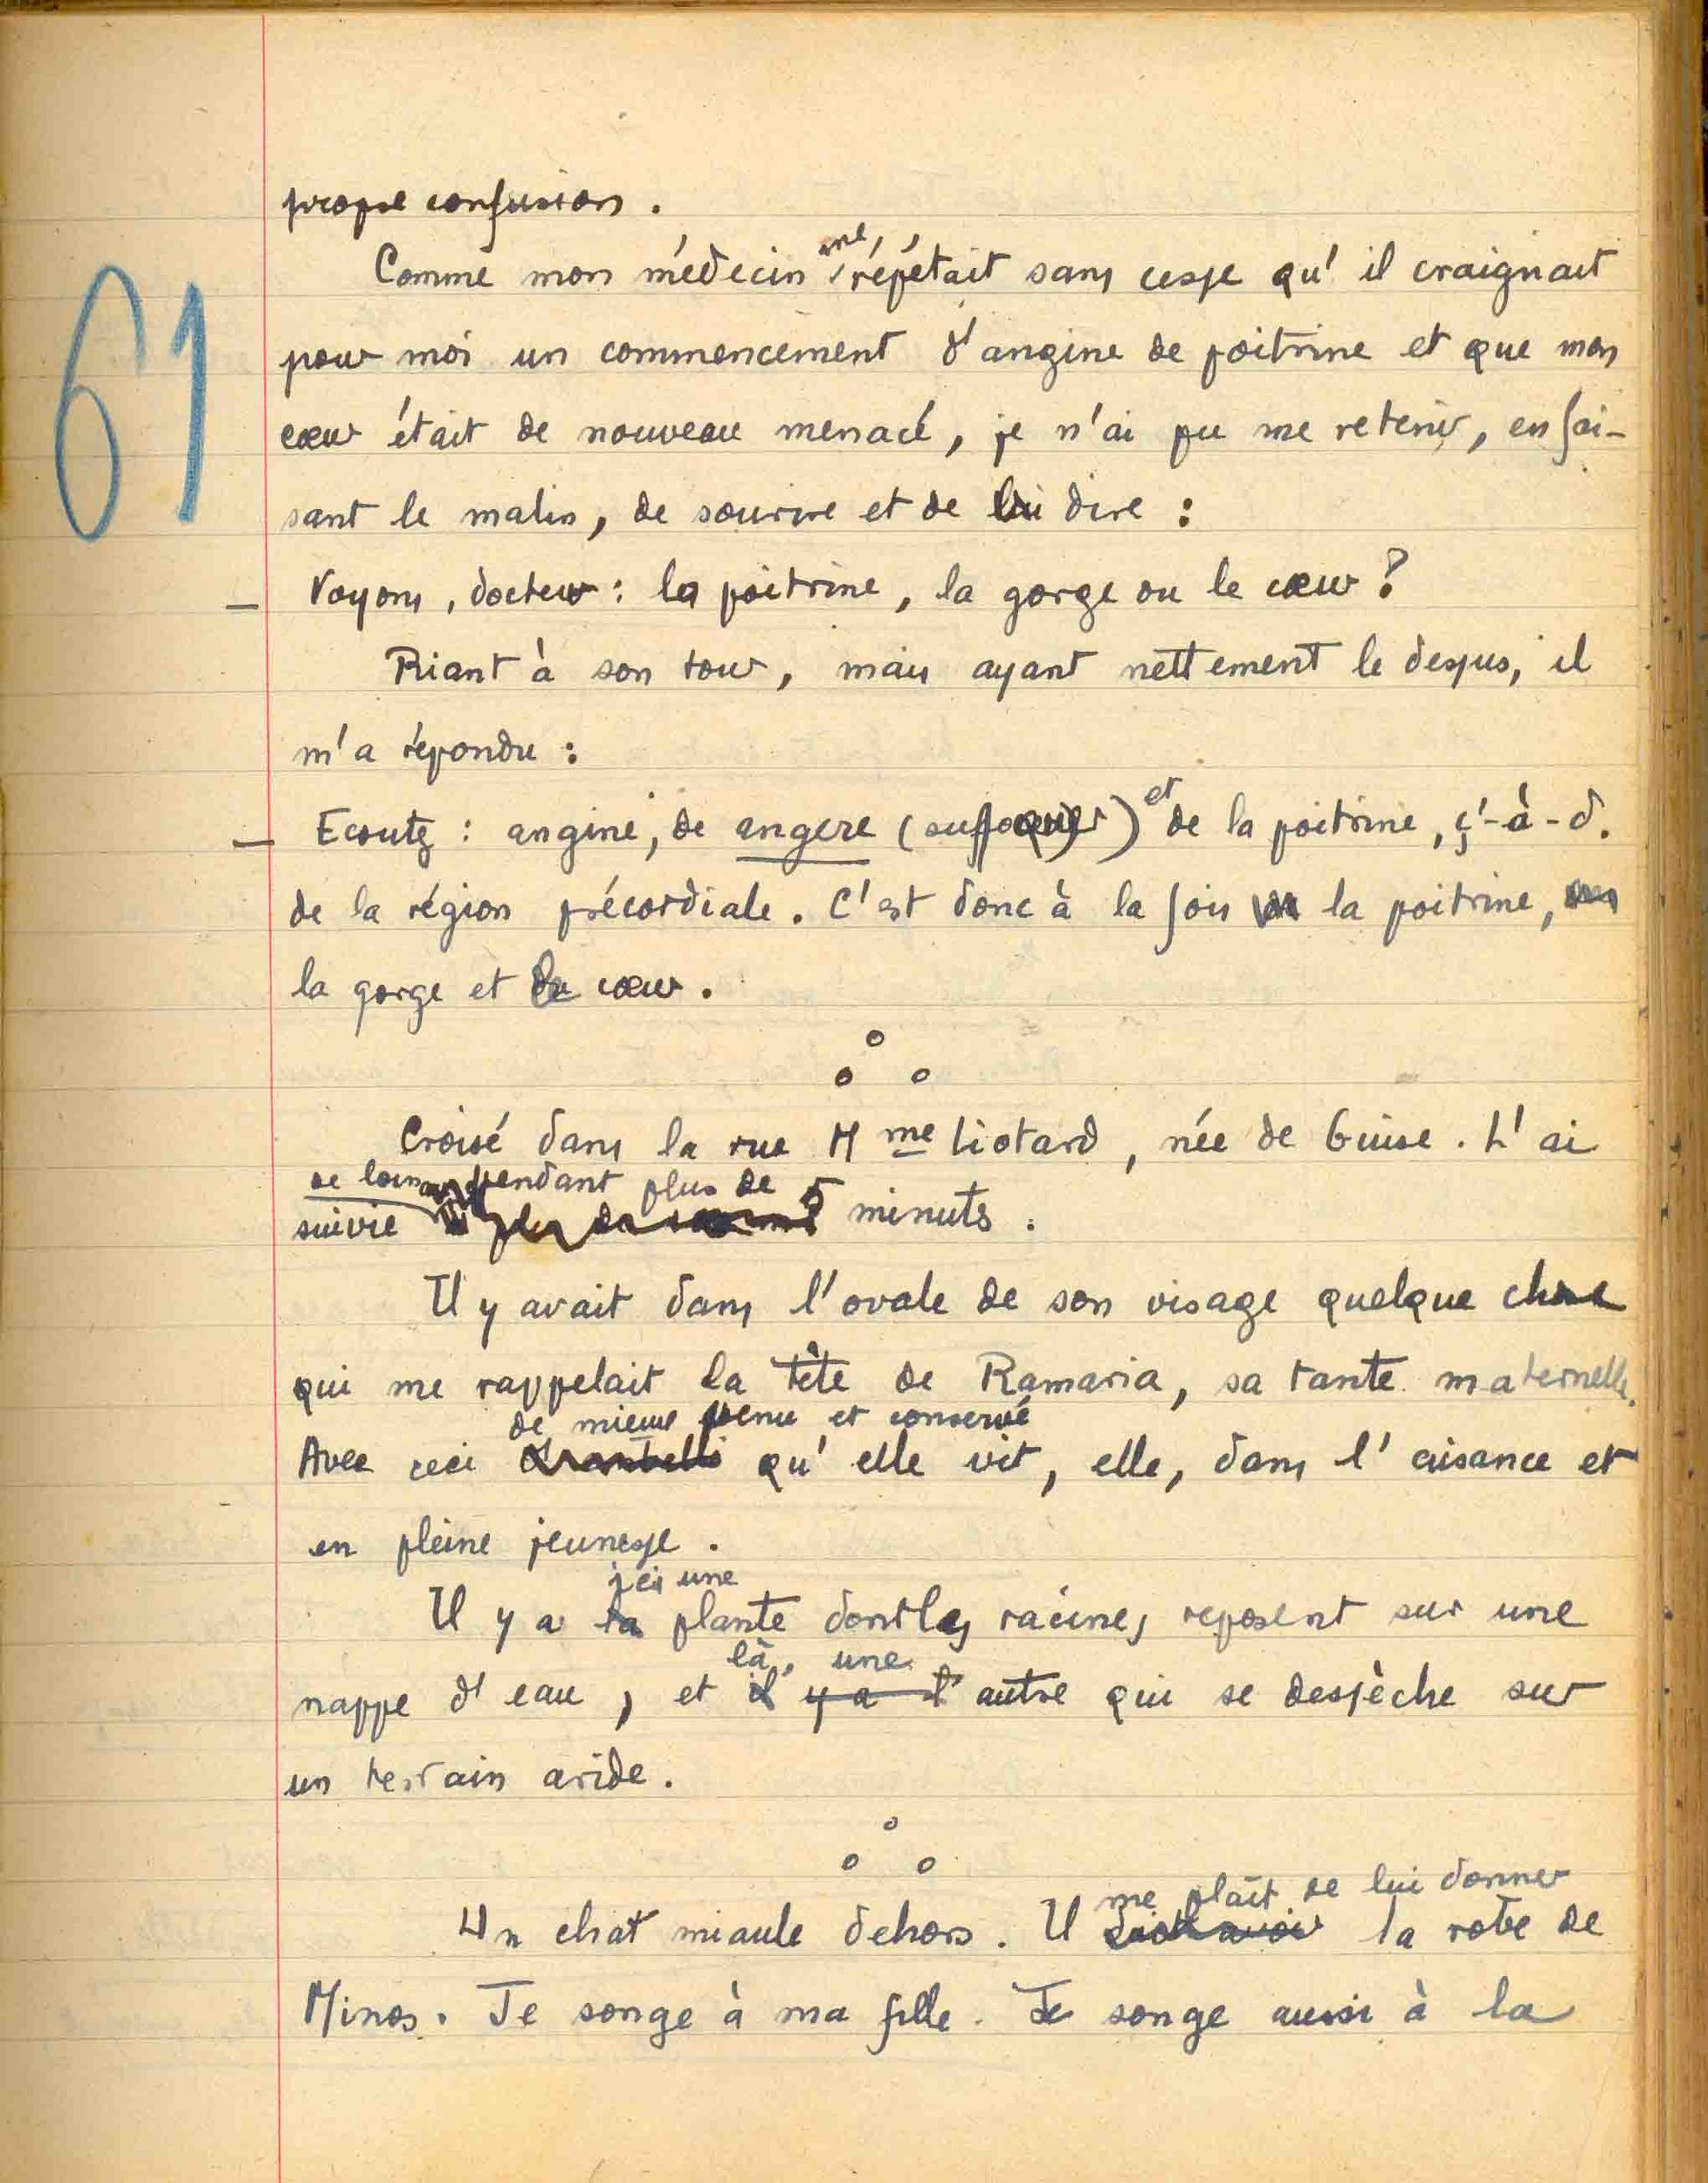 61
propre confusion.
Comme mon médecin me répétait sans cesse qu'il craignait
pour moi un commencement d'angine de poitrine et que mon
cœur était de nouveau menacé, je n'ai pu me retenir, en fai-
sant le malin, de sourire et de lui dire :
— Voyons, docteur : la poitrine, la gorge ou le cœur ?
Riant à son tour, mais ayant nettement le dessus, il
m'a répondu :
— Ecoutez : angine, de angere (suffoquer) et de la poitrine, c'-à-d.
de la région précordiale. C'est donc à la fois la poitrine,
la gorge et le cœur.
Croisé dans la rue Mme Liotard, née de Guise. L'ai
de loin pendant plus de
suivie 5 minutes.
Il y avait dans l'ovale de son visage quelque chose
qui me rappelait la tête de Ramaria, sa tante maternelle.
de mieux tenu et conservé
Avec ceci qu'elle vit, elle, dans l'aisance et
en pleine jeunesse.
ici une
Il y a la plante dont les racines reposent sur une
là, une
nappe d'eau, et il y a l'autre qui se dessèche sur
un terrain aride.
me plaît de lui donner
Un chat miaule dehors. Il doit avoir la robe de
Minos. Je songe à ma fille. Je songe aussi à la